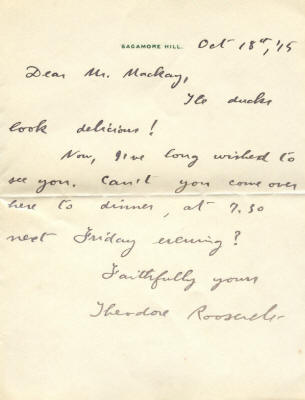 SAGAMORE HILL. Oct 18th, '15
Dear Mr. Mackay,
The ducks
look delicious!
Now, I've long wished to
see you. Can't you come over
here to dinner, at 7.30
next Friday evening?
Faithfully yours
Theodore Roosevelt